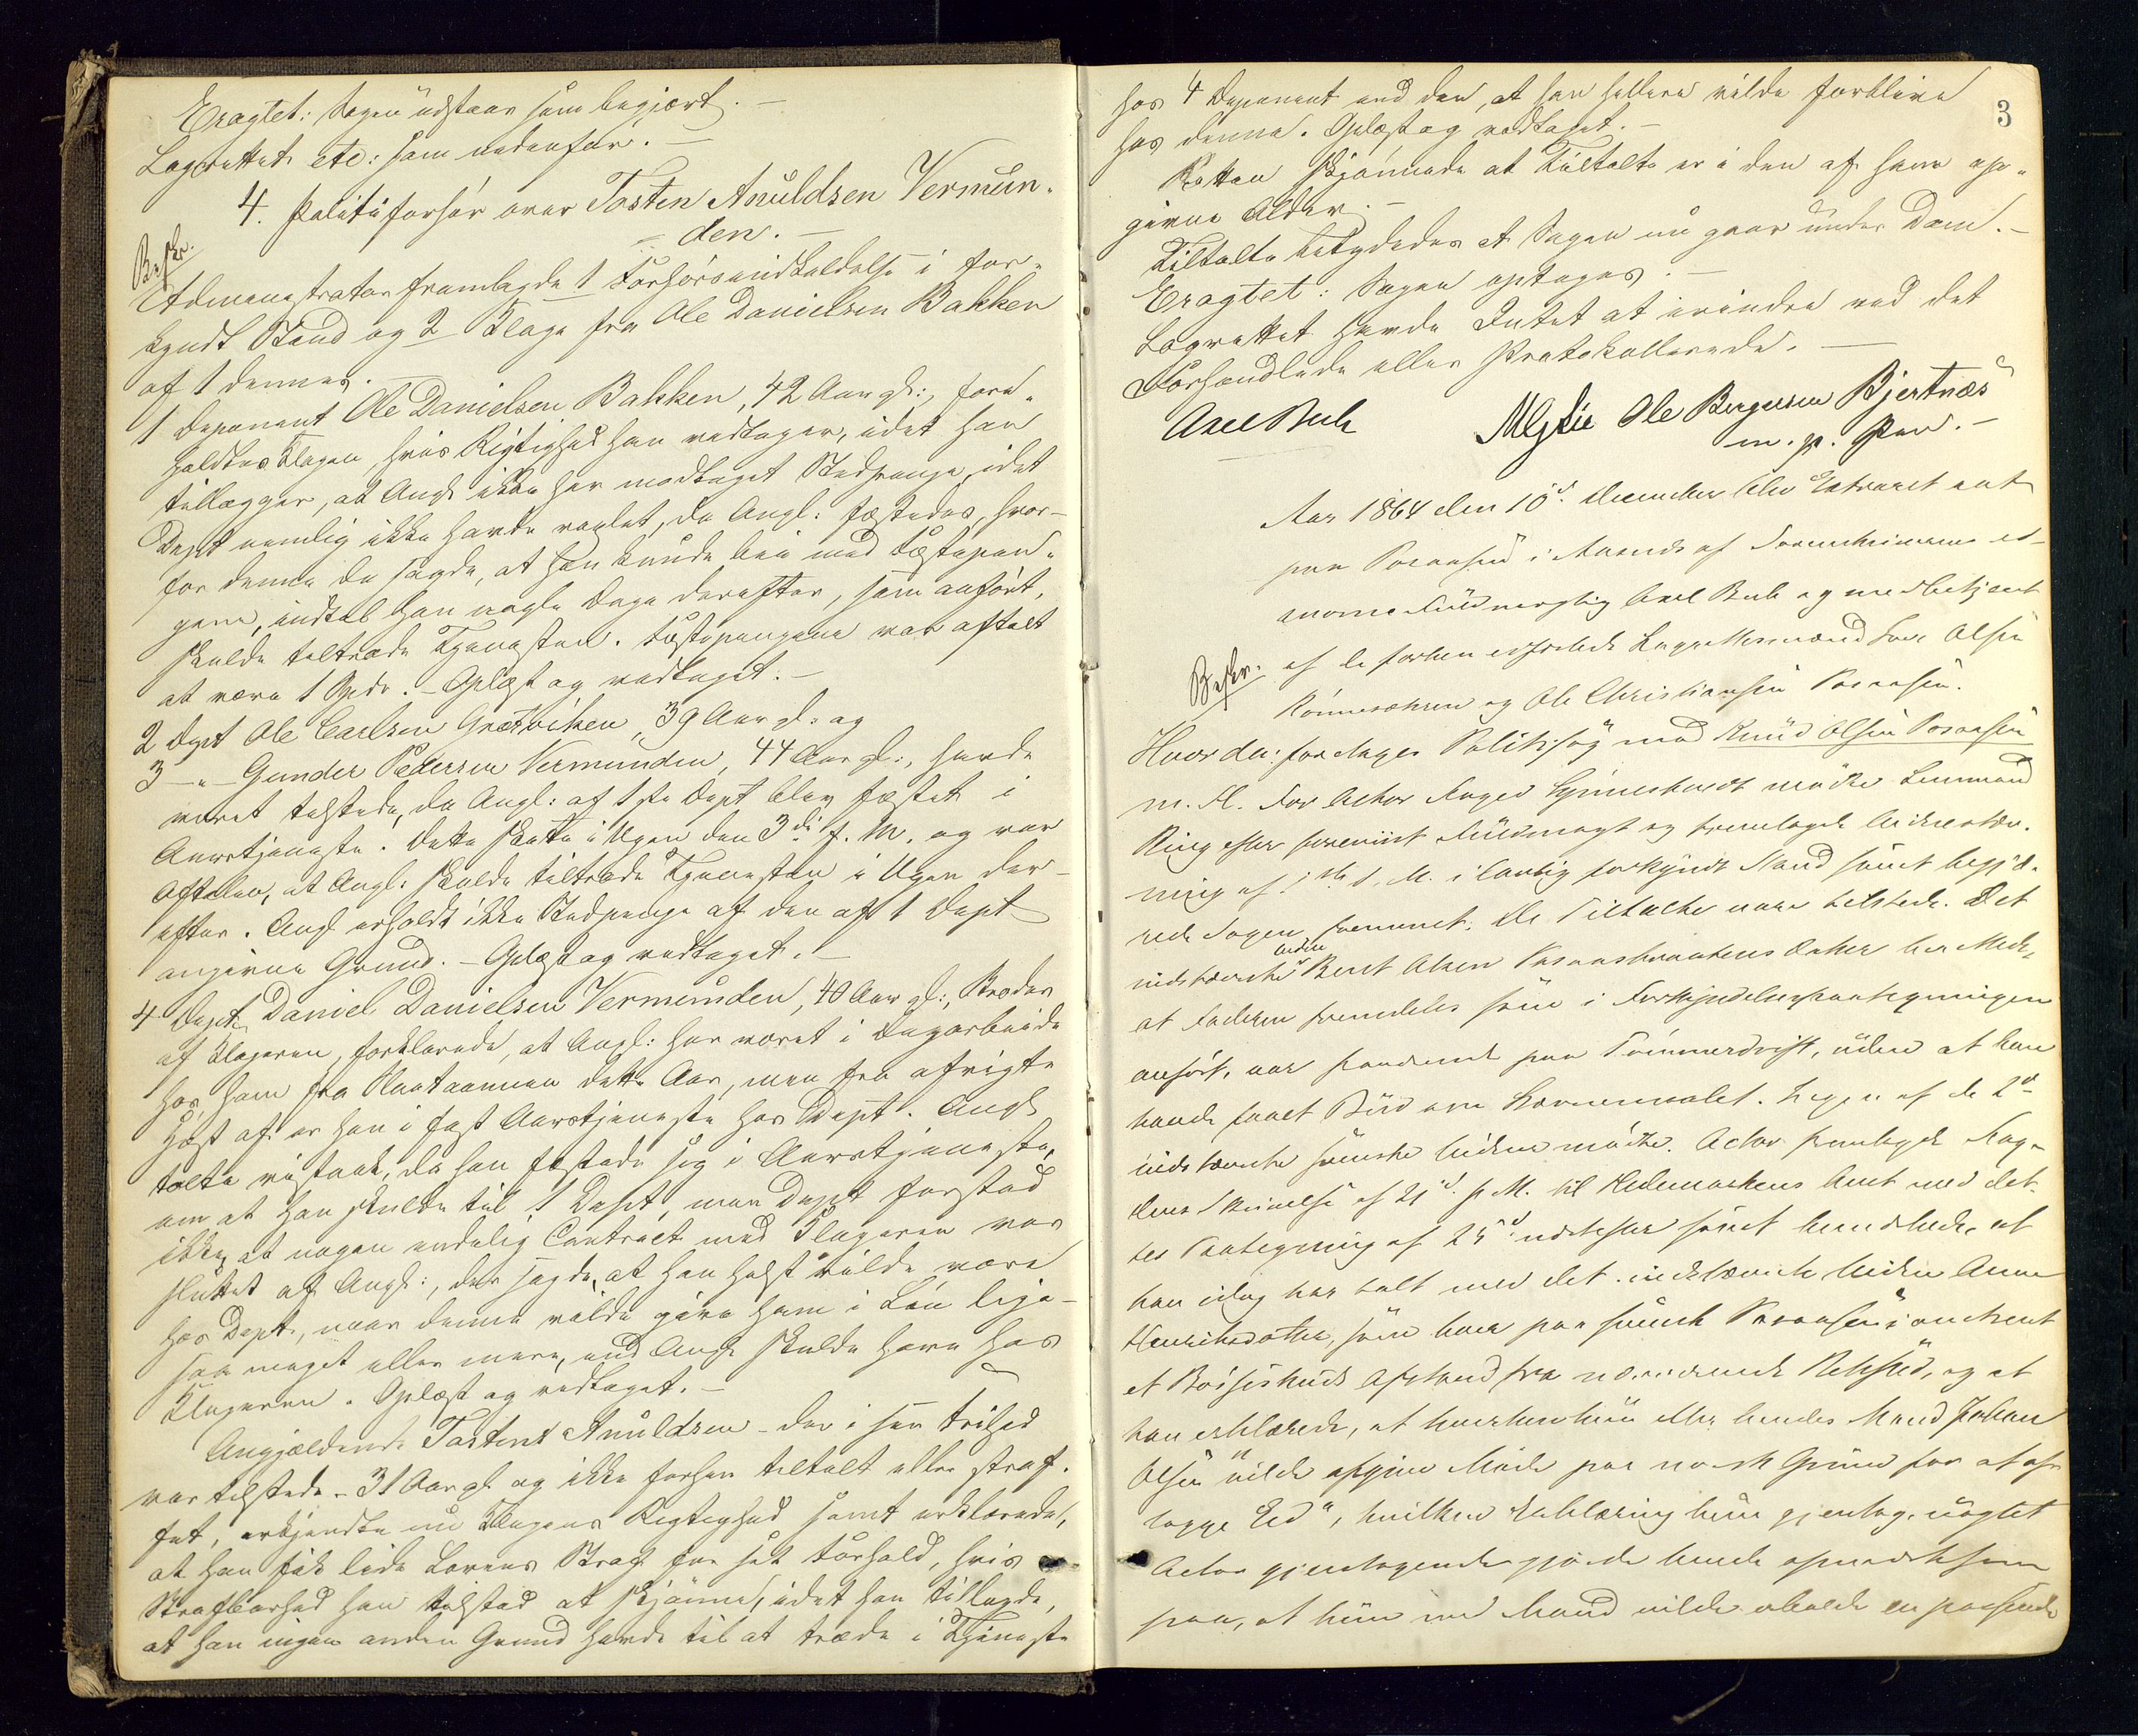 Eragtet: Sagen udstaar som begjært. –
Lagrettet etc: som nedenfor. –
4. Politiforhør over Tosten Anuldsen Vermun-
den. –
Beskr.
Administrator fremlagde 1 Forhørsindkaldelse i for-
kyndt Stand og 2 Klage fra Ole Danielsen Bakken
af 1 dennes. –
1 Deponent Ole Danielsen Bakken, 42 Aar gl:, fore-
holdtes Klagen, hvis Rigtighed han vedtager, idet han
tillægger, at Angl: ikke har modtaget Stedpenge, idet
Dept nemlig ikke havde vexlet, da Angl: fæstedes, hvor-
for denne da sagde, at han kunde bie med Fæstepen-
gene, indtil han nogle Dage derefter, som anført,
skulde tiltræde Tjenesten. Fæstepengene var aftalt
at være 1 Spdr. – Oplæst og vedtaget. –
2 Dept Ole Carlsen Græsviken, 39 Aar gl: og
3 – " – Gunder Pedersen Vermunden, 44 Aar gl:, havde
været tilstede, da Angl: af 1ste Dept blev fæstet i
Aarstjeneste. Dette skete i Ugen den 3die f. M. og var
Aftalen, at Angl: skulde tiltræde Tjenesten i Ugen der-
efter. Angl: erholdt ikke Stedpenge af den af 1 Dept
angivne Grund. – Oplæst og vedtaget. –
4 Dept Daniel Danielsen Vermunden, 40 Aar gl:, Broder
af Klageren, forklarede, at Angl: har været i Dagarbeide
hos ham fra Slaataannen dette Aar, men fra afvigte
Høst af er han i fast Aarstjeneste hos Dept. Angl:
talte vistnok, da han fæstede sig i Aarstjeneste,
om at han skulde til 1 Dept, men Dept forstod
ikke, at nogen endelig Contract med Klageren var
sluttet af Angl:, der sagde, at han helst vilde være
hos Dept, naar denne vilde give ham i Løn lige-
saa meget eller mere, end Angl: skulde have hos
Klageren. Oplæst og vedtaget. –
Angjældende Tosten Anuldsen – der i sin Frihed
var tilstede – 31 Aar gl: og ikke forhen tiltalt eller straf-
fet, erkjendte nu Klagens Rigtighed samt erklærede,
at han fik lide Lovens Straf for sit Forhold, hvis
Strafbarhed han tilstod at skjønne, idet han tillagde,
at han ingen anden Grund havde til at træde i Tjeneste
3
hos 4 Deponent end den, at han hellere vilde forblive
hos denne. Oplæst og vedtaget. –
Retten skjønnede at Tiltalte er i den af ham op-
givne Alder. –
Tiltalte betydedes at Sagen nu gaar under Dom. –
Eragtet: Sagen optages. –
Lagrettet havde Intet at erindre ved det
Forhandlede eller Protokollerede. –
Axel Bull Ole Bergersen Bjertnæs
m. p. Pen. –
Aar 1864 den 10d December blev Extraret sat
paa Posaasen i Aasnds af Sorenskriverens
Fuldmægtig Axel Bull og medbetjent
Beskr. af de forhen edfæstede Lagrettesmænd Ole Olsen
og Ole Christiansen Posaasen.
Hvorda: foretages Politisag mod Knud Olsen Posaasen
m. Fl. For Actor Foged møtte Lensmand
Ring efter Fuldmagt og fremlagde
ning af d. M. i lovlig forkyndt Stand samt begjæ-
rede Sagen fremmet. De Tiltalte vare tilstede. Det
indstævnte Vidne Beret Olsen
at Faderen fremdeles som i Forkyndelsespaategningen
anført, var paa Tømmerdrift, uden at han
havde faaet Bud om Stævnemaalet. Ingen af de 2de
indstævnte svenske Vidner mødte. Actor fremlagde Fog-
dens Skrivelse af 21d f. M. til Hedemarkens Amt med det-
tes Paategning af 25d næstefter samt bemærkede, at
han idag har talt med det indstævnte Vidne Anne
Henriksdotter, som boer paa svensk Posaasen i omtrent
et Bøsseskuds Afstand fra nærværende Retssted, og at
hun erklærede, at hverken hun eller hendes Mand Johan
Olsen "vilde afgive Møde paa norsk Grund for at af-
lægge Ed", hvilken Erklæring hun gjentog, uagtet
Actor gjentagende gjorde hende opmærksom
paa, at hun med Mand vilde erholde en passende